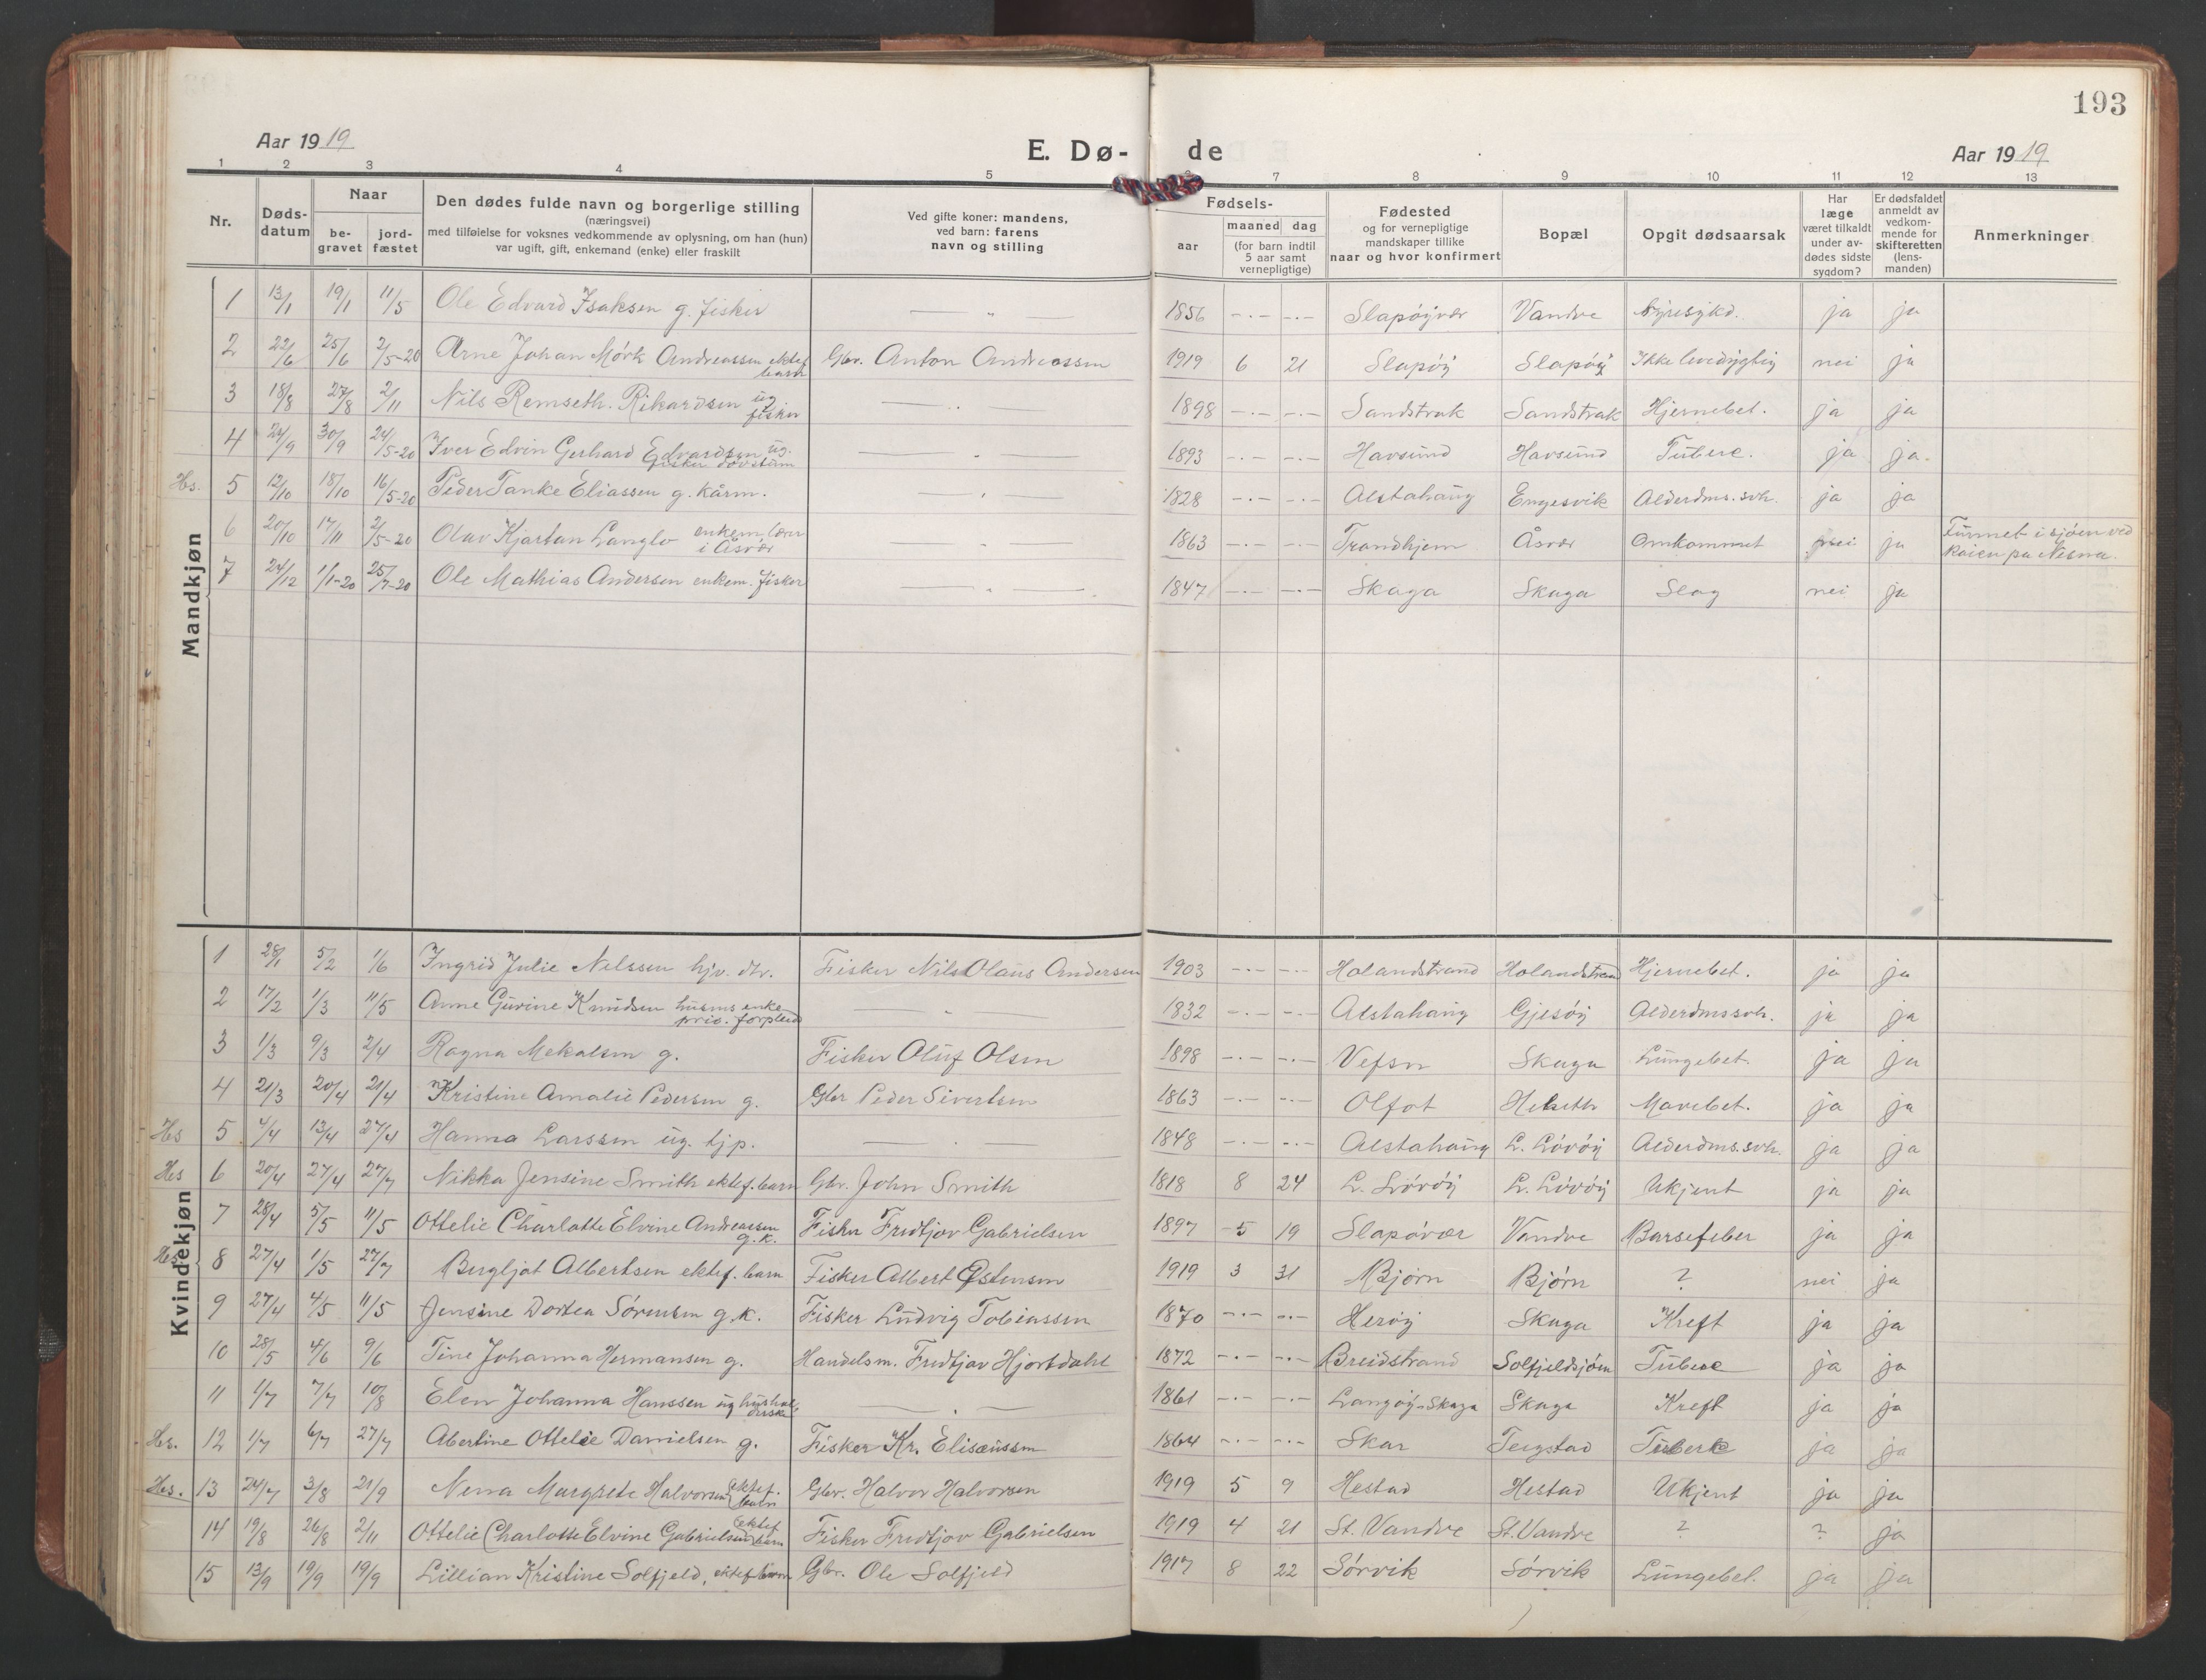 193
Aar 1919 E. Dø- de Aar 1919
1 2 3 4 5 6 7 8 9 10 11 12 13
Nr. Døds-datum Naar be-gravet jord-fæstet Den dødes fulde navn og borgerlige stilling (næringsvei) med tilføielse for voksnes vedkommende av oplysning, om han (hun) var ugift, gift, enkemand (enke) eller fraskilt Ved gifte koner: mandens, ved barn: farens navn og stilling Fødsels- aar maaned dag (for barn indtil 5 aar samt vernepligtige) Fødested og for vernepligtige mandskaper tillike naar og hvor konfirmert Bopæl Opgit dødsaarsak Har læge været tilkaldt under av-dødes sidste sygdom? Er dødsfaldet anmeldt av vedkom-mende for skifteretten (lens-manden) Anmerkninger
Mandkjøn
1 13/1 19/1 11/5 Ole Edvard Isaksen g. fisker — " — 1856 —.— —.— Slapøyvær Vandve ja ja
2 22/6 25/6 2/5-20 Arne Johan Mørk Andreassen ektef. barn Gbr. Anton Andreassen 1919 6 21 Slapøy Slapøy Ikke levedygtig nei ja
3 18/8 27/8 2/11 Nils Remseth Rikardsen ug. fisker — " — 1898 —.— —.— Sandstrak Sandstrak Hjernebet. ja ja
4 24/9 30/9 24/5-20 Iver Edvin Gerhard Edvardsen ug. fisker døvstum — " — 1893 —.— —.— Havsund Havsund Tuberc. ja ja
Hs. 5 12/10 18/10 16/5-20 Peder Tanke Eliassen g. kårm. — " — 1828 —.— —.— Alstahaug Engesvik Alderdms.svh. ja ja
6 20/10 17/11 2/5-20 Olav Kjartan Langlo enkem. lærer i Åsvær — " — 1863 —.— —.— Trondhjem Åsvær Omkommet nei ja Funnet i sjøen ved kaien på Nesna.
7 24/12 1/1-20 25/7-20 Ole Mathias Andersen enkem. fisker — " — 1847 —.— —.— Skaga Skaga Slag nei ja
Kvindekjøn
1 28/1 5/2 1/6 Ingrid Julie Nilssen hjv. dtr. Fisker Nils Olaus Andersen 1903 —.— —.— Holandstrand Holandstrand Hjernebet. ja ja
2 17/2 1/3 11/5 Anne Gurine Knudsen husms enke priv. forpleid — " — 1832 —.— —.— Alstahaug Gjesøy Alderdmssvh. ja ja
3 1/3 9/3 2/4 Ragna Mekalsen g. Fisker Oluf Olsen 1898 —.— —.— Vefsn Skaga Lungebet. ja ja
4 21/3 20/4 21/4 Kristine Amalie Pedersen g. Gbr Peder Sivertsen 1863 —.— —.— Olfot Helseth Mavebet. ja ja
Hs 5 4/4 13/4 27/4 Hanna Larssen ug. tjp. — " — 1848 —.— —.— Alstahaug L. Løvøy Alderdms.svh. ja ja
Hs 6 20/4 27/4 27/7 Nikka Jensine Smith ektef. barn Gbr. John Smith 1818 8 24 L. Løvøy L. Løvøy Ukjent ja ja
7 28/4 5/5 11/5 Ottelie Charlotte Elvine Andreassen g.k. Fisker Fredtjov Gabrielsen 1897 5 19 Slapøvær Vandve Barsefeber ja ja
Hs. 8 27/4 1/5 27/7 Bergljot Albertsen ektef. barn Fisker Albert Østensen 1919 3 31 Bjørn Bjørn ? nei ja
9 27/4 4/5 11/5 Jensine Dortea Sørensen g.k. Fisker Ludvig Tobiassen 1870 —.— —.— Herøy Skaga Kreft ja ja
10 28/5 4/6 9/6 Tine Johanna Hermansen g. Handelsm. Fredtjov Hjortdahl 1872 —.— —.— Breidstrand Solfjeldsjøen Tuberc ja ja
11 1/7 7/7 10/8 Elen Johanna Hanssen ug hushol-derske — " — 1861 —.— —.— Langøy-Skaga Skaga Kreft ja ja
Hs. 12 1/7 6/7 27/7 Abertine Ottelie Danielsen g. Fisker Kr. Eliseussen 1864 —.— —.— Skar Teigstad Tuberk ja ja
Hs. 13 24/7 3/8 21/9 Nena Margrete Halvorsen ektef. barn Gbr. Halvor Halvorsen 1919 5 9 Hestad Hestad Ukjent ja ja
14 19/8 26/8 2/11 Ottelie Charlotte Elvine Gabrielsen ektef. barn Fisker Fredtjov Gabrielsen 1919 4 21 St. Vandve St. Vandve ? ? ja
15 13/9 19/9 19/9 Lillian Kristine Solfjeld, ektef barn Gbr. Ole Solfjeld 1917 8 22 Sørvik Sørvik Lungebet. ja ja